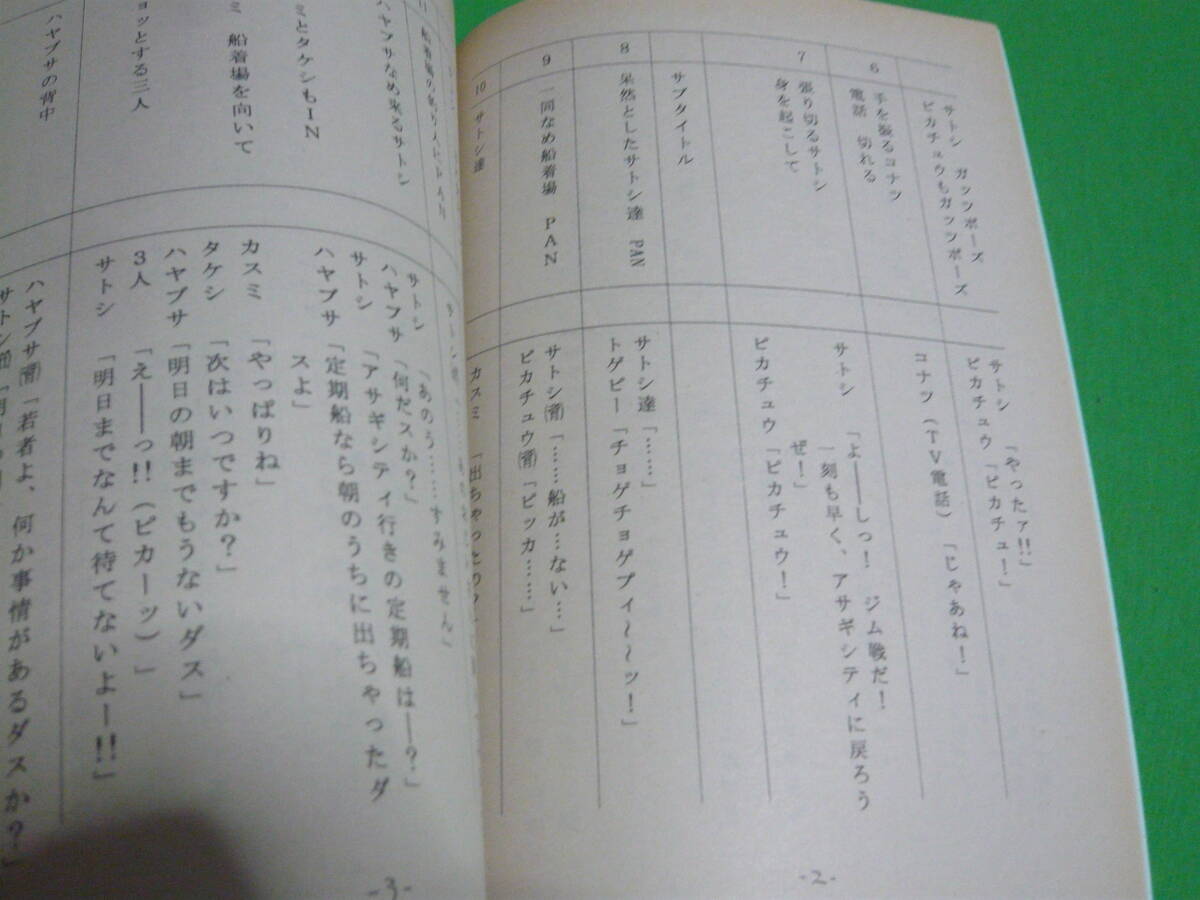 サトシ　ガッツポーズ
ピカチュウもガッツポーズ
サトシ　「やったァ!!」
ピカチュウ「ピカチュ！」
6
手を振るコナツ
電話　切れる
コナツ（ＴＶ電話）「じゃあね！」
7
張り切るサトシ
身を起こして
サトシ　「よ――しっ！　ジム戦だ！
一刻も早く、アサギシティに戻ろう
ぜ！」
ピカチュウ「ピカチュウ！」
サブタイトル
8
呆然としたサトシ達　PAN
サトシ達「……」
トゲピー「チョゲチョゲプィ～～ッ！」
9
一同なめ船着場　ＰＡＮ
サトシ㈳「……船が…ない…」
ピカチュウ㈳「ピッカ……」
10
サトシ達
カスミ　「出ちゃったの？
-2-
11
船着場の釣り人にＰＡＮ
サトシ　「あのう……すみません」
ハヤブサなめ来るサトシ
ハヤブサ「何だスか？」
サトシ　「アサギシティ行きの定期船は――？」
ハヤブサ「定期船なら朝のうちに出ちゃったダ
スよ」
ミとタケシもＩＮ
カスミ　「やっぱりね」
タケシ　「次はいつですか？」
ミ　船着場を向いて
ハヤブサ「明日の朝までもうないダス」
3人　「え――っ!!（ピカーッ）」
ョッとする三人
サトシ　「明日までなんて待てないよー!!」
ハヤブサの背中
ハヤブサ㈳「若者よ、何か事情があるダスか？」
-3-